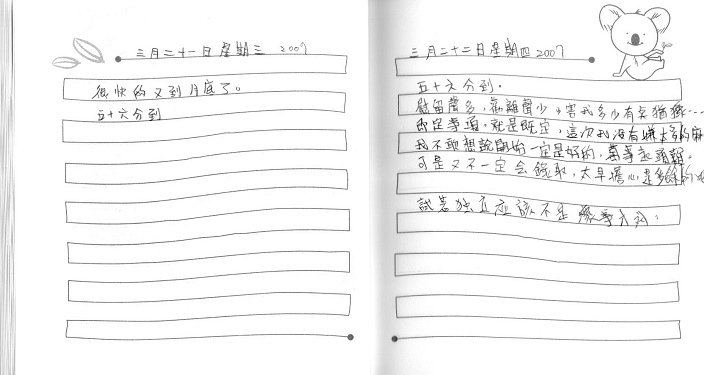 三月二十一日星期三 2007
很快的又到月底了。
五十六分到
三月二十二日星期四 2007
五十六分到.
慰留聲多, 勸離聲少, 害我多少有点猶豫…
既定事項, 就是既定, 這次我沒有
我不敢想說開始一定是好的, 萬事起頭難。
可是又不一定會錄取, 太早擔心是多餘的
試著独立應該不是